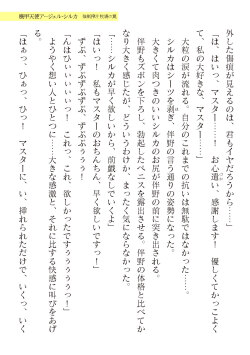 機甲天使アージェル・シルカ
外した傷痕が見えるのは、君もイヤだろうから……」
「は、はいっ、マスター……! お心遣い、感謝します! 優しくてかっこよく
て、私の大好きな、マスター……!」
大粒の涙が流れる。自分のこれまでの抗いは無駄ではなかった……。
シルカはシーツを剥ぎ、伴野の言う通りの姿勢になった。
大きくて肉つきのいいシルカのお尻が伴野の前に突き出される。
伴野もズボンを下ろし、勃起したペニスを露出させる。伴野の体格と比べてか
なり大きく感じたが、どういうわけか、まったく気にならなかった。
「……シルカが早く欲しいから、前戯なしでいくよ」
「はいっ! 私もマスターのおちんちん、早く欲しいですっ!」
ずぷ、ずぷずぷずぷ、ずぷぷぷぅぅぅ!
「んはひいぃぃっっ! これっ、これ、欲しかったですぅぅぅぅぅっ!」
ようやく想い人とひとつに……大きな感激と、それに比する快感に叫びをあげ
る。
「はぁっ、ひぁっ、ひっ! マスターに、い、挿れられただけで、いくっ、いく